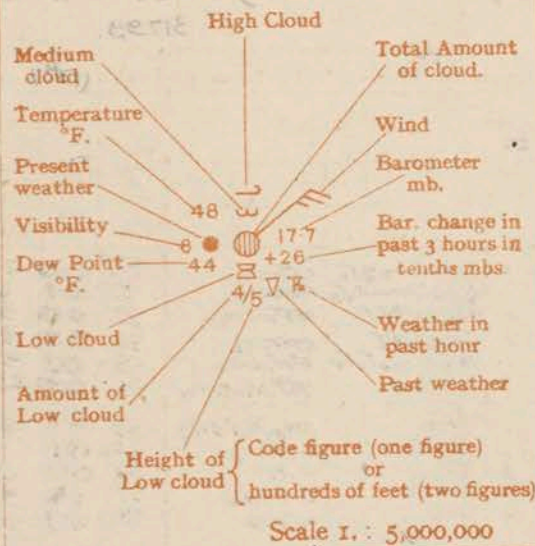 High Cloud
Medium
cloud
Total Amount
of cloud.
Temperature
°F.
Wind
Present
weather
Barometer
mb.
48
17·7
Visibility
8
Bar. change in
past 3 hours in
tenths mbs.
Dew Point
°F.
44
+26
4/5
Low cloud
Weather in
past hour
Amount of
Low cloud
Past weather
Height of
Low cloud
Code figure (one figure)
or
hundreds of feet (two figures)
Scale 1. : 5,000,000